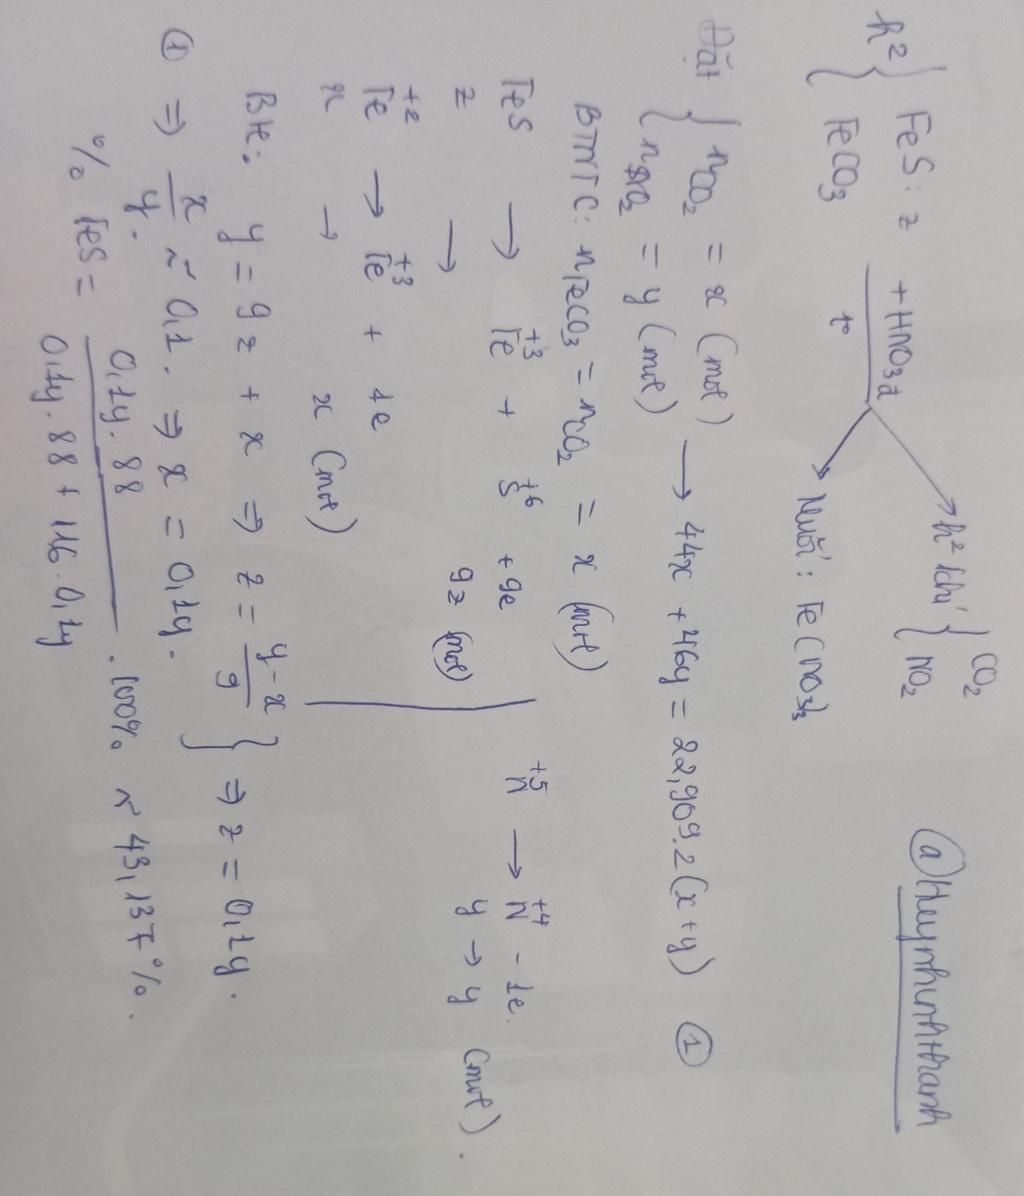 @Huynhinhthanh
h² { FeS: z
FeCO₃
+ HNO₃đ
t°
h² khí { CO₂
NO₂
Muối: Fe(NO₃)₃
Đặt { nCO₂ = x (mol)
nNO₂ = y (mol) → 44x + 46y = 22,909.2(x+y) ①
BTNT C: nFeCO₃ = nCO₂ = x (mol)
FeS → Fe⁺³ + S⁺⁶ + 9e
z → 9z (mol)
N⁺⁵ → N⁺⁴ - 1e.
y → y (mol).
Fe⁺² → Fe⁺³ + 1e
x → x (mol)
BTe: y = 9z + x ⇒ z = (y-x)/9
① ⇒ x/y ~ 0,1. ⇒ x = 0,1y. } ⇒ z = 0,1y.
% FeS = (0,1y.88)/(0,1y.88 + 116.0,1y) . 100% ~ 43,137%.